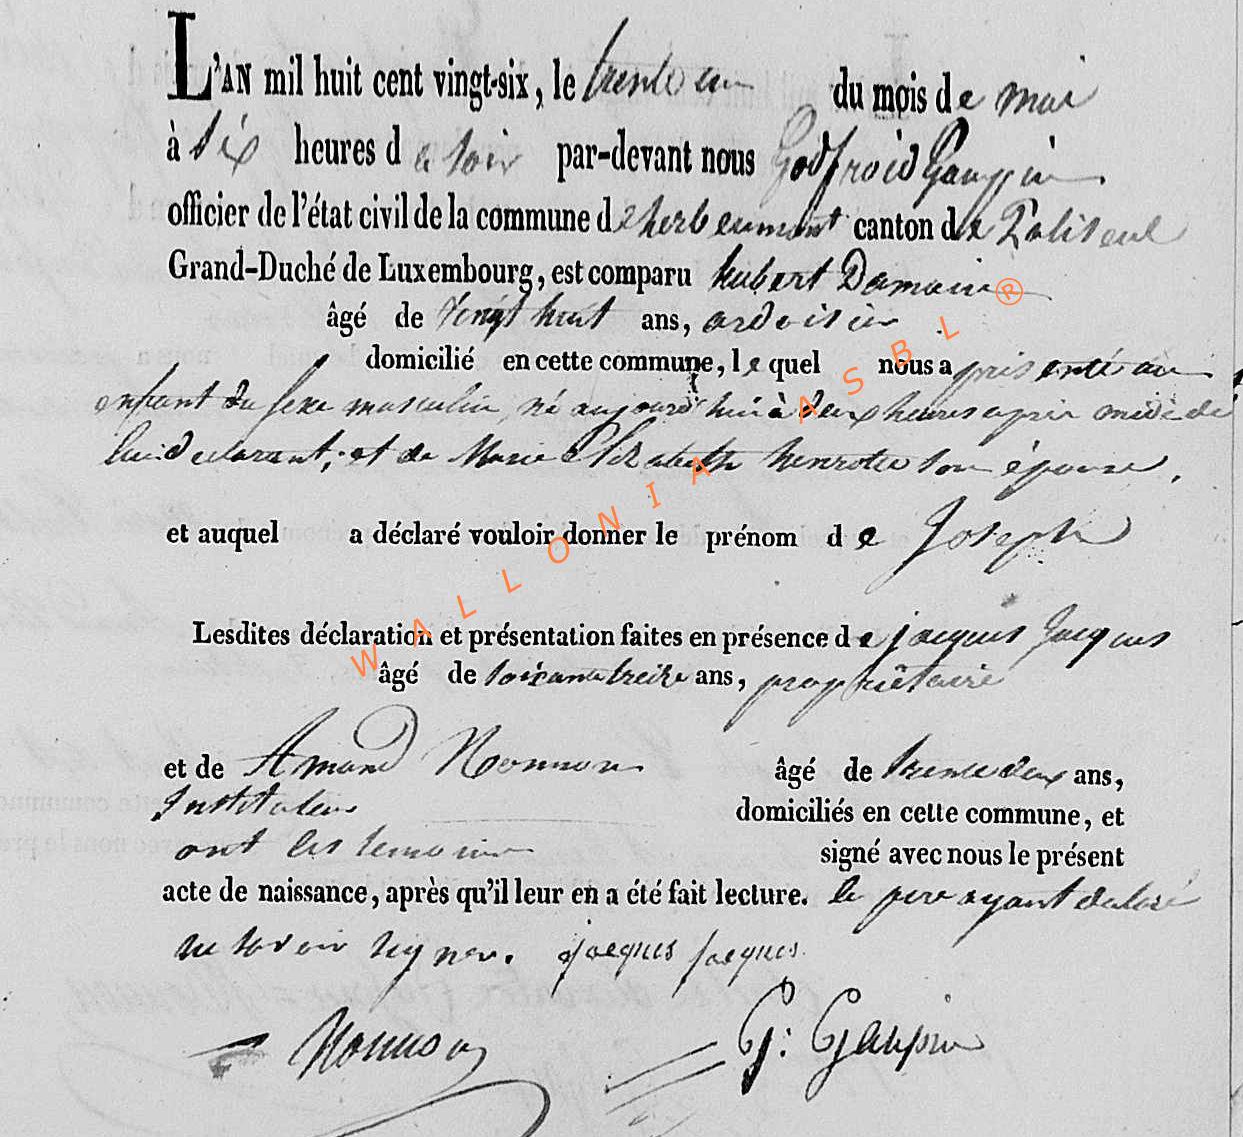 L'AN mil huit cent vingt-six, le trente un du mois de mai
à six heures du soir par-devant nous Godfroid Gauppin
officier de l'état civil de la commune de herbeumont canton de Paliseul
Grand-Duché de Luxembourg, est comparu hubert Damain
âgé de vingt huit ans, ardoisier
domicilié en cette commune, lequel nous a présenté un
enfant du sexe masculin, né aujourd'hui à deux heures après midi de
lui declarant, et de Marie Elisabeth henrotte son épouse,
et auquel a déclaré vouloir donner le prénom de Joseph
Lesdites déclaration et présentation faites en présence de jacques Jacques
âgé de soixante treize ans, propriétaire
et de Amand Nonnon âgé de trente deux ans,
Instituteur domiciliés en cette commune, et
ont les temoins signé avec nous le présent
acte de naissance, après qu'il leur en a été fait lecture. le pere ayant declaré
ne savoir signer. jacques jacques
Nonnon G: Gauppin
WALLONIA ASBL ®